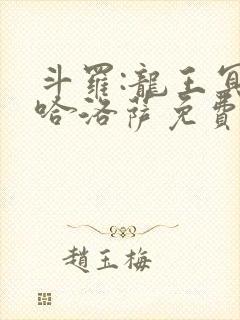 斗羅:龍王冥
哈洛薩免費
趙玉梅